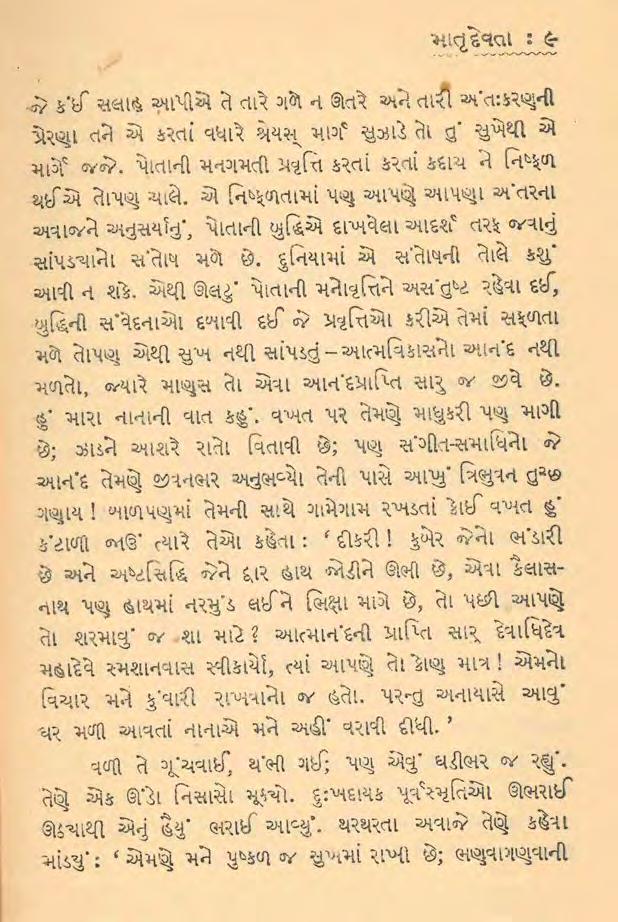 માતૃદેવતા : ૯
જે કંઈ સલાહ આપીએ તે તારે ગળે ન ઊતરે અને તારી અંતઃકરણની
પ્રેરણા તને એ કરતાં વધારે શ્રેયસ્ માર્ગ સુઝાડે તો તું સુખેથી એ
માર્ગે જજે. પોતાની મનગમતી પ્રવૃત્તિ કરતાં કરતાં કદાચ ને નિષ્ફળ
થઈએ તોપણ ચાલે. એ નિષ્ફળતામાં પણ આપણે આપણા અંતરના
અવાજને અનુસર્યાનું, પોતાની બુદ્ધિએ દાખવેલા આદર્શ તરફ જવાનું
સાંપડ્યાનો સંતોષ મળે છે. દુનિયામાં એ સંતોષની તોલે કશું
આવી ન શકે. એથી ઊલટું પોતાની મનોવૃત્તિને અસંતુષ્ટ રહેવા દઈ,
બુદ્ધિની સંવેદનાઓ દબાવી દઈ જે પ્રવૃત્તિઓ કરીએ તેમાં સફળતા
મળે તોપણ એથી સુખ નથી સાંપડતું – આત્મવિકાસનો આનંદ નથી
મળતો, જ્યારે માણસ તો એવા આનંદપ્રાપ્તિ સારુ જ જીવે છે.
હું મારા નાનાની વાત કહું. વખત પર તેમણે માધુકરી પણ માગી
છે; ઝાડને આશરે રાતો વિતાવી છે; પણ સંગીત-સમાધિનો જે
આનંદ તેમણે જીવનભર અનુભવ્યો તેની પાસે આખું ત્રિભુવન તુચ્છ
ગણાય ! બાળપણમાં તેમની સાથે ગામેગામ રખડતાં કોઈ વખત હું
કંટાળી જાઉં ત્યારે તેઓ કહેતા : ‘ દીકરી ! કુબેર જેનો ભંડારી
છે અને અષ્ટસિદ્ધિ જેને દ્વાર હાથ જોડીને ઊભી છે, એવા કૈલાસ-
નાથ પણ હાથમાં નરમુંડ લઈને ભિક્ષા માગે છે, તો પછી આપણે
તો શરમાવું જ શા માટે ? આત્માનંદની પ્રાપ્તિ સારૂ દેવાધિદેવ
મહાદેવે સ્મશાનવાસ સ્વીકાર્યો, ત્યાં આપણે તો કોણ માત્ર ! એમનો
વિચાર મને કુંવારી રાખવાનો જ હતો. પરન્તુ અનાયાસે આવું
ઘર મળી આવતાં નાનાએ મને અહીં વરાવી દીધી. ’
વળી તે ગૂંચવાઈ, થંભી ગઈ; પણ એવું ઘડીભર જ રહ્યું.
તેણે એક ઊંડો નિસાસો મૂક્યો. દુઃખદાયક પૂર્વસ્મૃતિઓ ઊભરાઈ
ઊઠ્યાથી એનું હૈયું ભરાઈ આવ્યું. થરથરતા અવાજે તેણે કહેવા
માંડ્યું : ‘ એમણે મને પુષ્કળ જ સુખમાં રાખી છે; ભણવાગણવાની